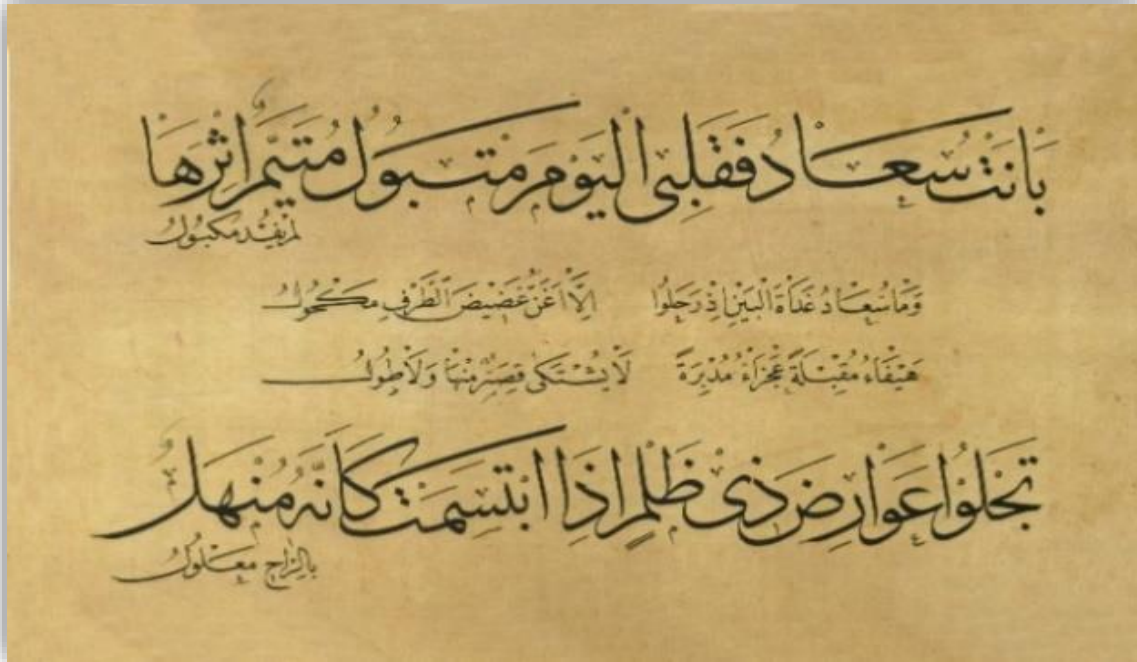 بَانَتْ سُعَادُ فَقَلْبِى الْيَوْمَ مَتْبُولُ مُتَيَّمٌ اِثْرَهَا
لَمْ يُفْدَ مَكْبُولُ
وَمَا سُعَادُ غَدَاةَ الْبَيْنِ اِذْ رَحَلُوا اِلَّا اَغَنُّ غَضِيضَ الطَّرْفِ مَكْحُولُ
هَيْفَاءُ مُقْبِلَةً عَجْزَاءُ مُدْبِرَةً لَا يُشْتَكٰى قِصَرٌ مِنْهَا وَلَا طُولُ
تَجْلُوا عَوَارِضَ ذِى ظَلْمٍ اِذَا ابْتَسَمَتْ كَاَنَّهُ مُنْهَلٌ
بِالرَّاحِ مَعْلُولُ